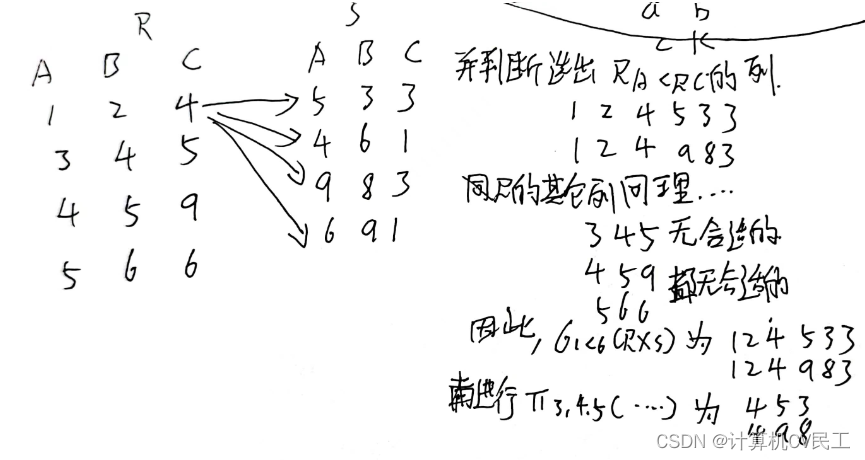 R
A B C
1 2 4
3 4 5
4 5 9
5 6 6
S
A B C
5 3 3
4 6 1
9 8 3
6 9 1
a b
c
并判断选出 RA<RC的列.
1 2 4 5 3 3
1 2 4 9 8 3
同R的其它列同理....
3 4 5 无合适的
4 5 9 都无合适的
5 6 6
因此, σ1<6(R×S) 为 1 2 4 5 3 3
1 2 4 9 8 3
再进行 π3,4,5(····) 为 4 5 3
4 9 8
CSDN @计算机CV民工